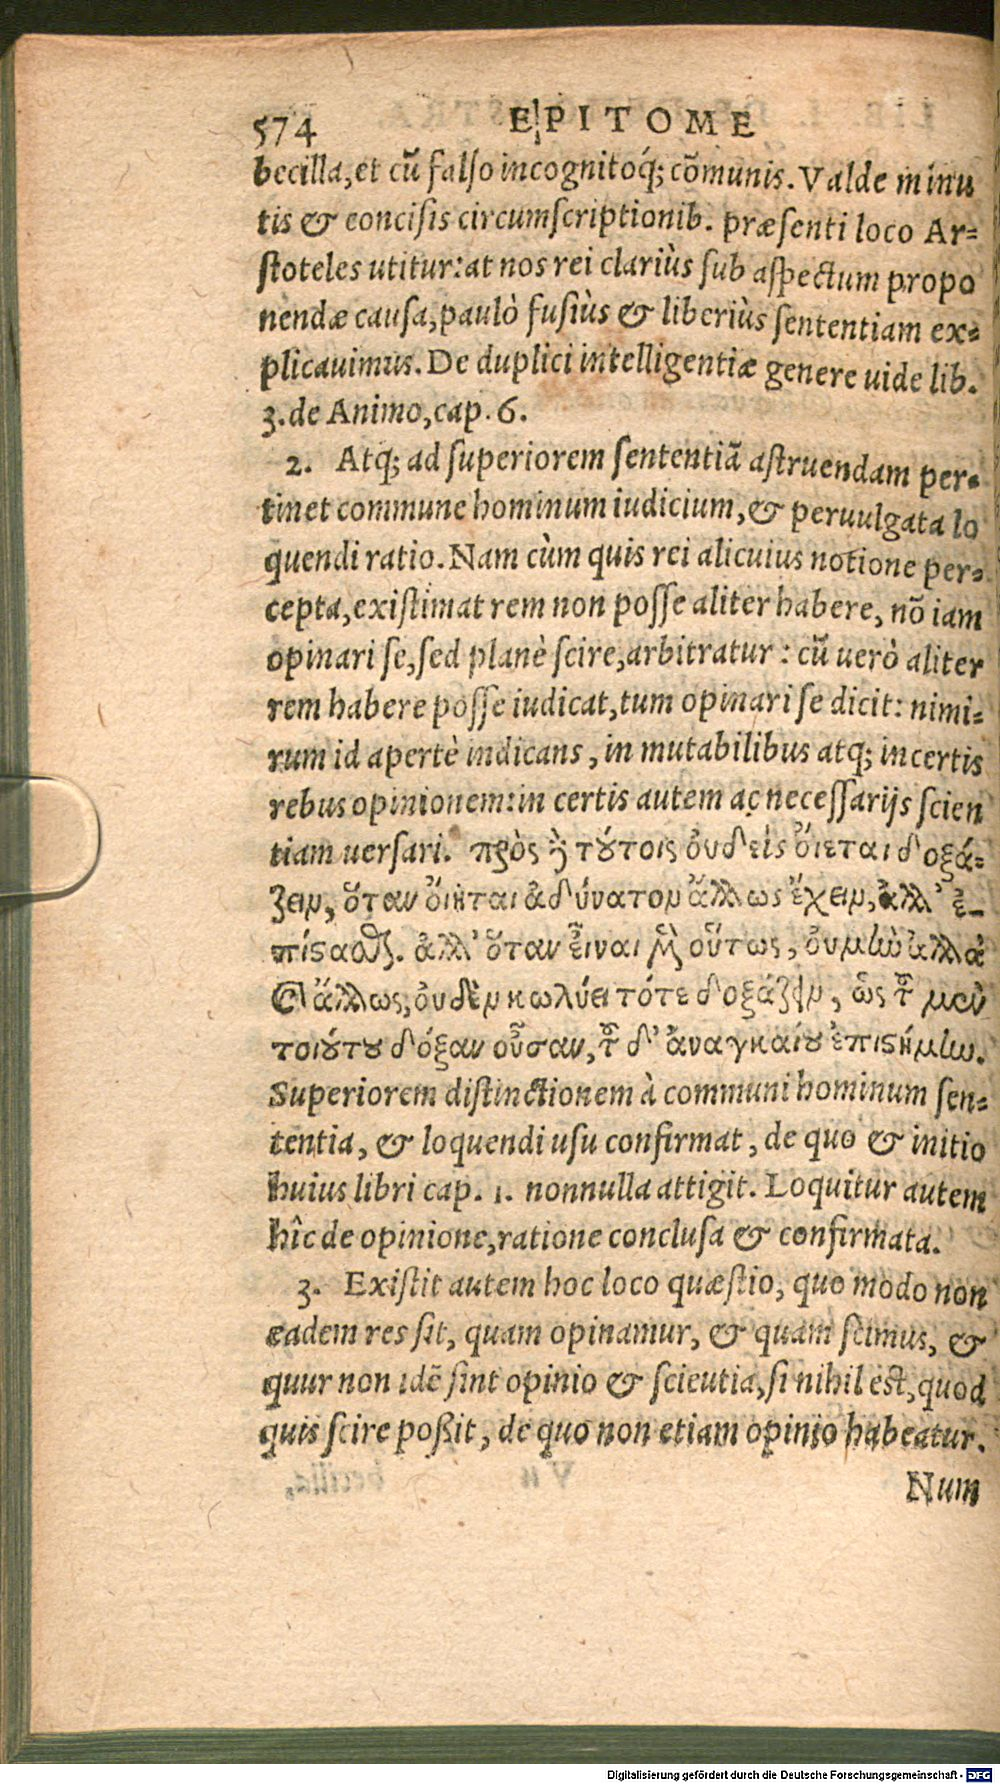 574 EPITOME
becilla, et cũ falso incognitoq́; cõmunis. Valde minu
tis & concisis circumscriptionib. præsenti loco Ar-
stoteles utitur: at nos rei clariùs sub aspectum propo
nendæ causa, paulò fusiùs & liberiùs sententiam ex-
plicauimus. De duplici intelligentiæ genere uide lib.
3. de Animo, cap. 6.
2. Atq; ad superiorem sententiã astruendam per-
tinet commune hominum iudicium, & peruulgata lo
quendi ratio. Nam cùm quis rei alicuius notione per-
cepta, existimat rem non posse aliter habere, nõ iam
opinari se, sed planè scire, arbitratur: cũ uerò aliter
rem habere posse iudicat, tum opinari se dicit: nimi-
rum id apertè indicans, in mutabilibus atq; incertis
rebus opinionem: in certis autem ac necessarijs scien
tiam uersari. πρὸς ἢ τούτοις οὐδεὶς ὄιεται δοξά-
ζειν, ὅταν ὄιηται ἀδύνατον ἄλλως ἔχειν, ἀλλ' ἐ-
πίσασθαι. ἀλλ' ὅταν εἶναι μὲν οὕτως, οὐ μὴν ἀλλὰ
καὶ ἄλλως, οὐδὲν κωλύει τότε δοξάζειν, ὡς τοῦ μὲν
τοιούτου δόξαν οὖσαν, τοῦ δ' ἀναγκαίου ἐπιστήμην.
Superiorem distinctionem à communi hominum sen-
tentia, & loquendi usu confirmat, de quo & initio
huius libri cap. 1. nonnulla attigit. Loquitur autem
hîc de opinione, ratione conclusa & confirmata.
3. Existit autem hoc loco quæstio, quo modo non
eadem res sit, quam opinamur, & quam scimus, &
quur non idẽ sint opinio & scieutia, si nihil est, quod
quis scire poßit, de quo non etiam opinio habeatur.
Num
Digitalisierung gefördert durch die Deutsche Forschungsgemeinschaft - DFG